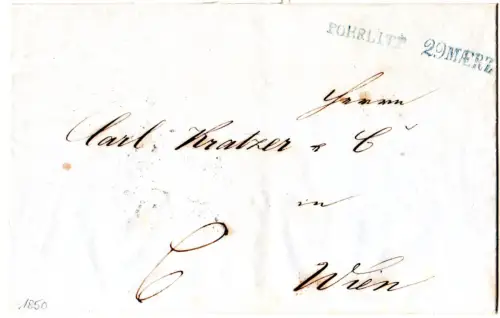 POHRLITZ 29 MÆRZ
Herrn
Carl Kratzer & C
in
6 Wien
1850